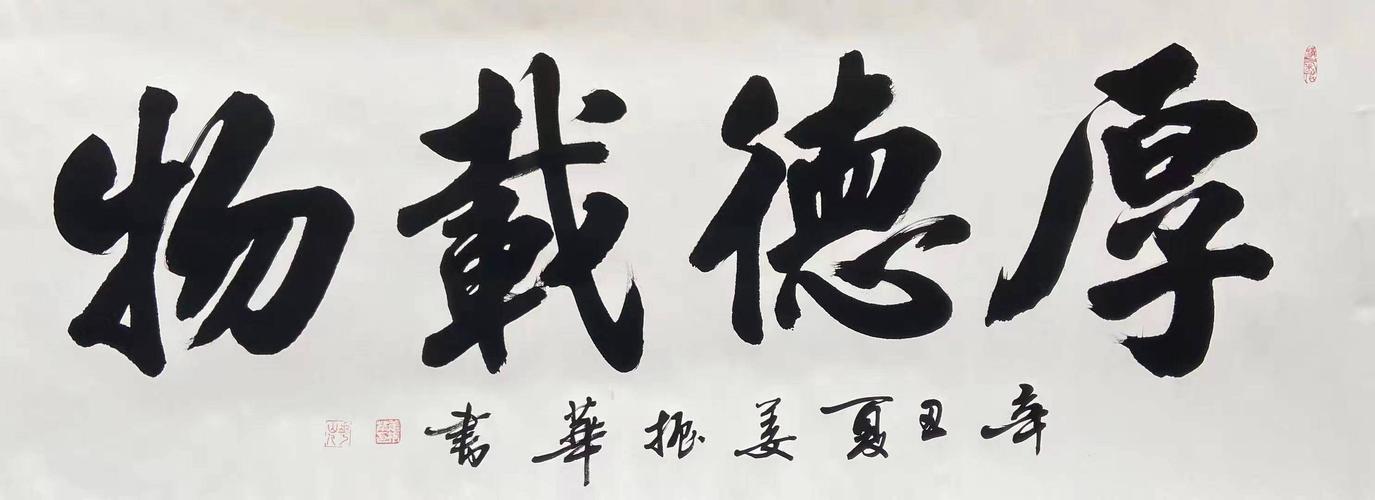 厚德載物
辛丑夏姜振華書